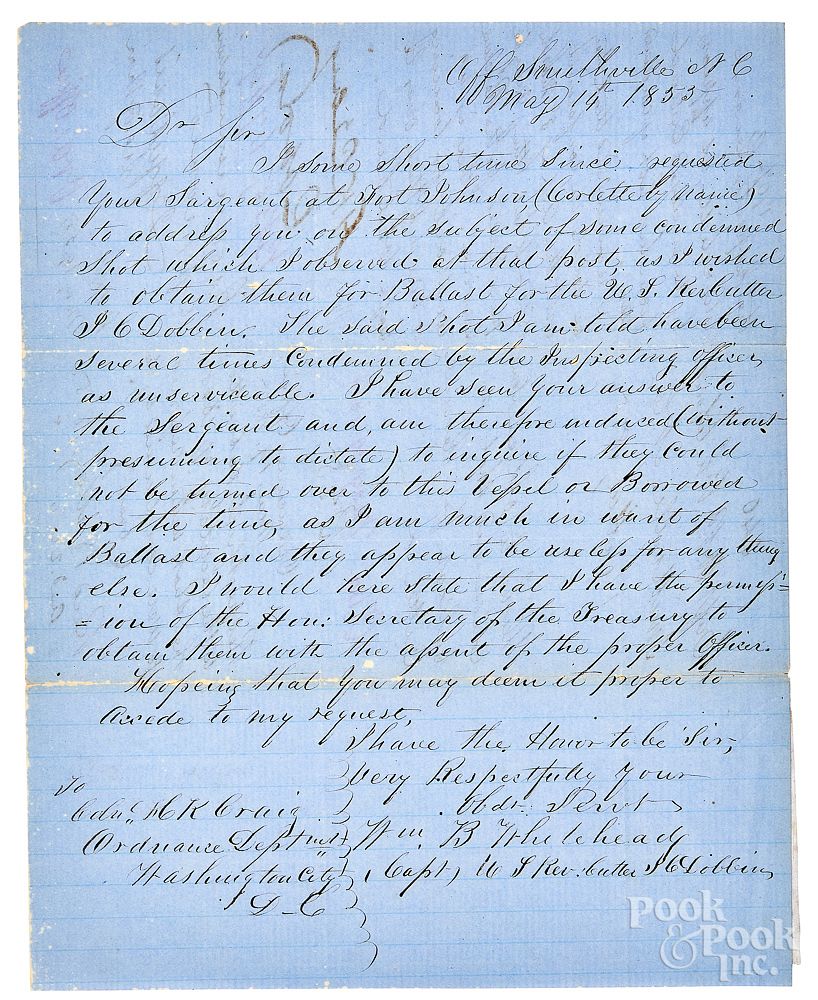 Off Smithville N C
May 14th 1855
Dr Sir
I some short time since requested
your Sargeant at Fort Johnson, (Corlette by name)
to address you on the subject of some condemned
Shot which I observed at that post, as I wished
to obtain them for Ballast for the U. S. Rev Cutter
J C Dobbin. The said Shot, I am told have been
several times Condemned by the Inspecting officer,
as unserviceable. I have seen your answer to
the Sergeant and, am therefore induced (without
presuming to dictate) to inquire if they could
not be turned over to this Vessel or Borrowed
for the time, as I am much in want of
Ballast and they appear to be useless for any thing
else. I would here State that I have the permiss=
=ion of the Hon: Secretary of the Treasury to
obtain them with the assent of the proper Officer.
Hopeing that you may deem it proper to
Accede to my request,
I have the Honor to be Sir,
Very Respectfully Your
Obdt. Servt
Wm. B Whitehead
(Capt) U S Rev. Cutter J C Dobbin
To
Coln. H K Craig
Ordnance Deptmnt
Washington City
D-C
POOK
& POOK
INC.